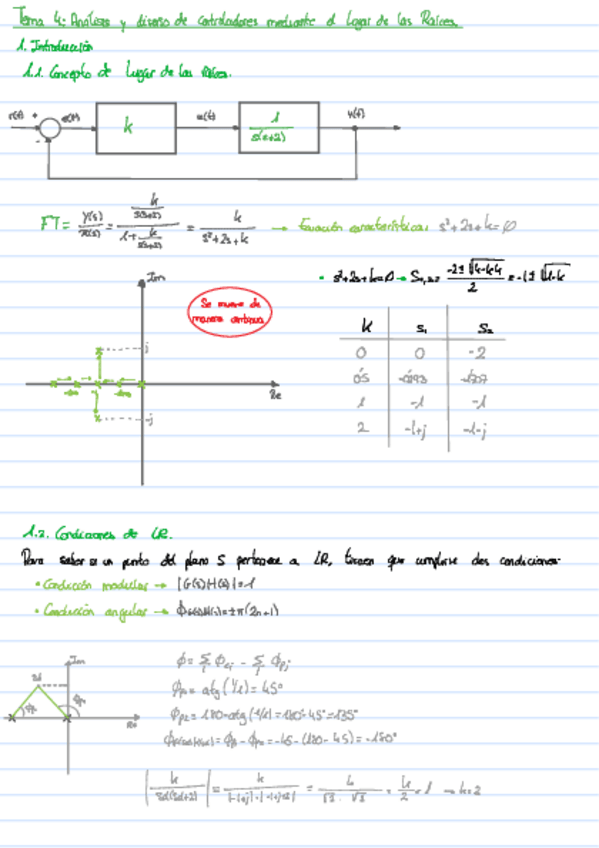 Tema 4: Análisis y diseño de controladores mediante el Lugar de las Raíces.
1. Introducción
1.1. Concepto de Lugar de las Raíces.
r(t) + e(t) k u(t) 1/s(s+2) y(t)
-
FT = Y(s)/R(s) = (k/s(s+2))/(1+k/s(s+2)) = k/(s²+2s+k) → Ecuación característica: s²+2s+k=0
• s²+2s+k=0 → S₁,₂= (-2±√(4-4k))/2 = -1±√(1-k)
Im
Se mueve de
manera continua
k s₁ s₂
0 0 -2
0'5 -0'293 -1'707
1 -1 -1
2 -1+j -1-j
j
Re
-j
1.2. Condiciones de LR.
Para saber si un punto del plano S pertenece a LR, tienen que cumplirse dos condiciones:
• Condición modular → |G(s)H(s)|=1
• Condición angular → ϕG(s)H(s)=±π(2n+1)
Im
sd
Re
ϕ = Σ ϕzi - Σ ϕpj
ϕp1 = atg(1/1) = 45°
ϕp2 = 180-atg(1/1) = 180°-45° = 135°
ϕG(s)H(s) = = -45-(180-45) = -180°
|k/(sd(sd+2))| = k/(|-1+j|·|-1+j+2|) = k/(√2·√2) = k/2 = 1 → k=2